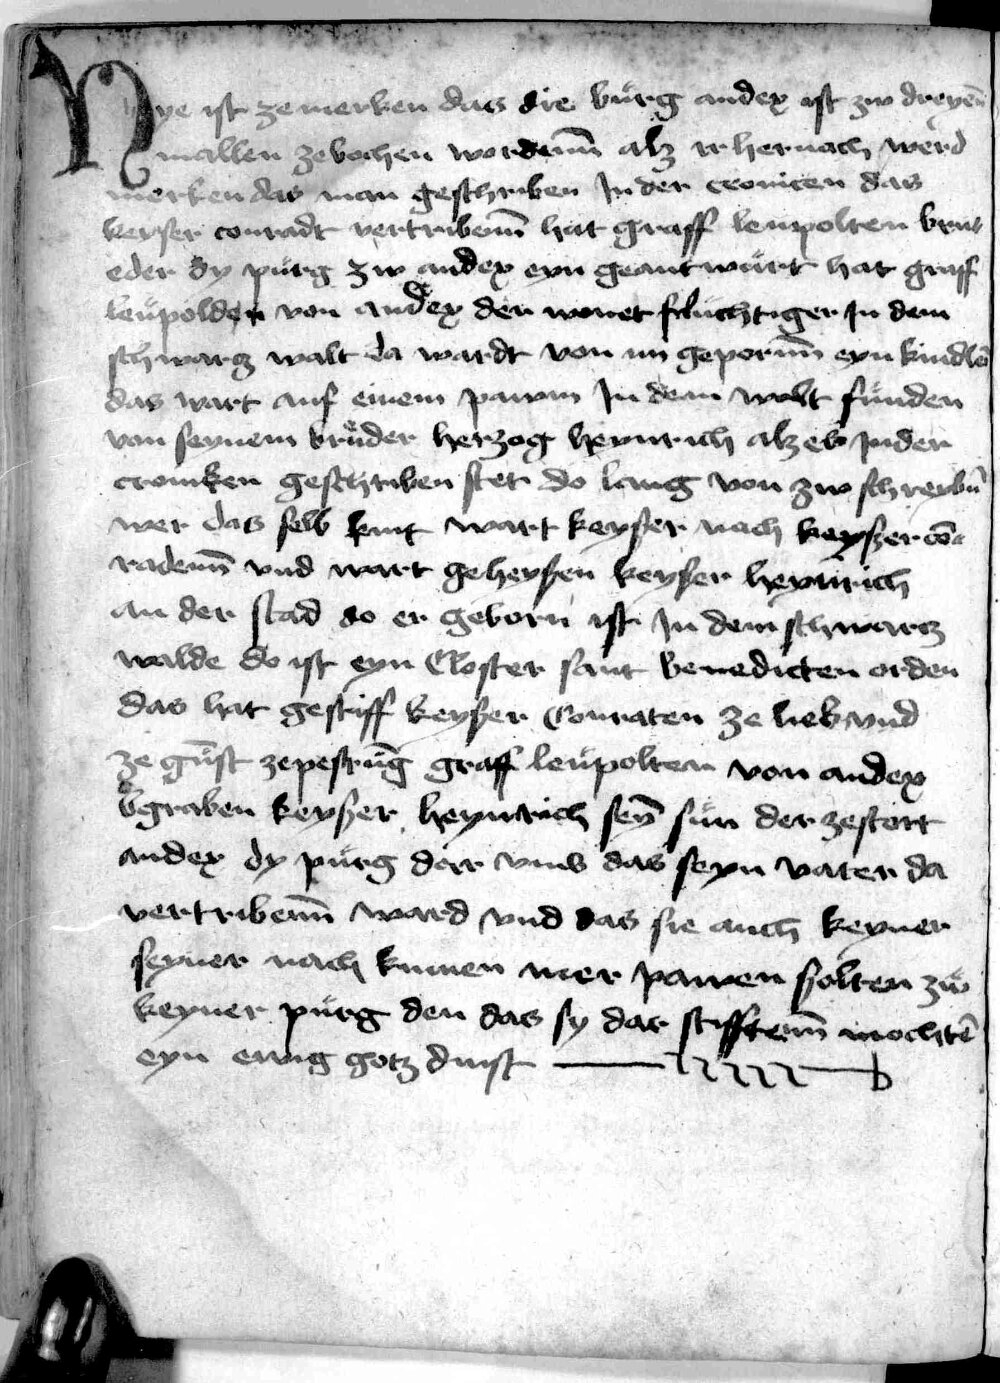 Nye ist ze merken das die bu̇rg andex ist zw dreyen̄
mallen zebrochen wordenn̄ alz ir hernach werd
merken das man geschriben In der cronicen das
keyser conradt vertribenn̄ hat graff leupolten brut
eder dy pu̇rg zw andex eyn geantwu̇rt hat graff
leu̇polden von andex der wonet fluchtiger In dem
schwarz walt da wardt von im geporenn̄ eyn kindle̅
das wart auf einem pawm In dem walt fu̇nden
von seynem bru̇der herzog heynrich alz es In der
croniken geschriben stet do lang von zw schreybn̄
wer das selb kint wart keyser nach keyszer co̅
radenn̄ vnd wart geheyssen keyser heynrich
an der stad do er geborn ist In dem schwarz
walde do ist eyn Closter sant benedicten orden
das hat gestiff keyser Conraten ze lieb vnd
ze gu̇nst ze pestu̅g graff leu̇polten von andex
begraben keyser heynrich sey̅ su̇n der zestort
andex dy pu̇rg dar vmb das seyn vater da
vertribenn̄ ward vnd das sie auch keyner
seyner nach kumen mer pawen solten zu̇
keyner pu̇rg den das sy dar stifftenn̄ mochte̅
eyn ewig gotz dinst